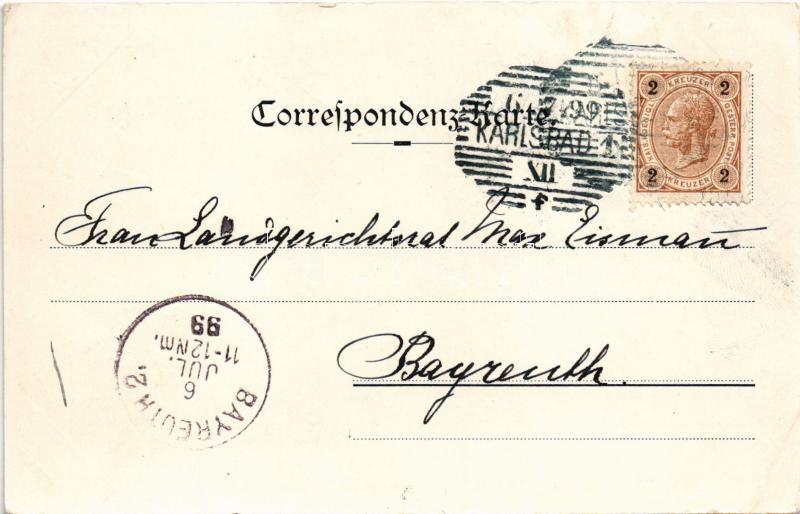 Correspondenz-Karte.
KARLSBAD 1
XII
f
2 KREUZER 2
2 KREUZER 2
Frau Landgerichtsrat Max Eismañ
Bayreuth.
BAYREUTH 2.
6
JUL.
11-12 Nm.
99